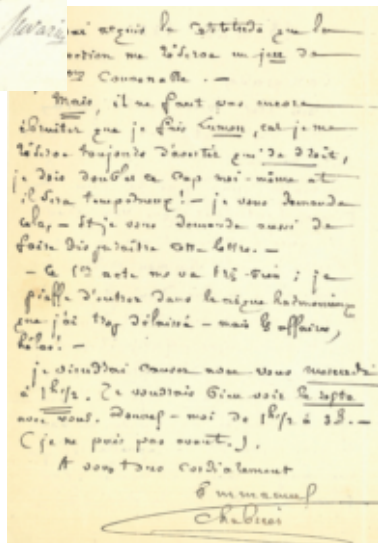 j'ai acquis la certitude que la
me réserve un jeu de
Mais, il ne faut pas encore
ébruiter que je fais car je me
réserve toujours d'avertir qui de droit,
je dois doubler ce Cap moi-même et
il sera tempêtueux! – je vous demande
cela, – Et je vous demande aussi de
faire disparaître cette lettre. –
– Ce 1er acte me va très-bien; je
piaffe d'entrer dans la harmonieux
que j'ai trop délaissé – mais les affaires,
hélas! –
je viendrai causer avec vous mercredi
à 1h1/2. Je voudrais bien voir le
avec vous. Donnez-moi de 1h1/2 à 3h. –
(je ne puis pas avant.)
A vous tous cordialement
Emmanuel
Chabrier